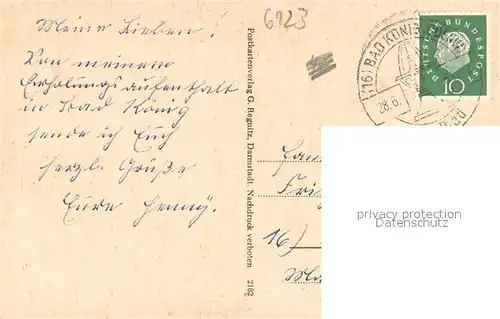 Meine Lieben!
Von meinem
Erholungsaufenthalt
in Bad König
sende ich Euch
herzl. Grüße
Eure Henny.
6123
Postkartenverlag G. Regnitz, Darmstadt. Nachdruck verboten 2182
(16) BAD KÖNIG
28.6.
DEUTSCHE BUNDESPOST
10
Fam
Fri
16)
privacy protection
Datenschutz